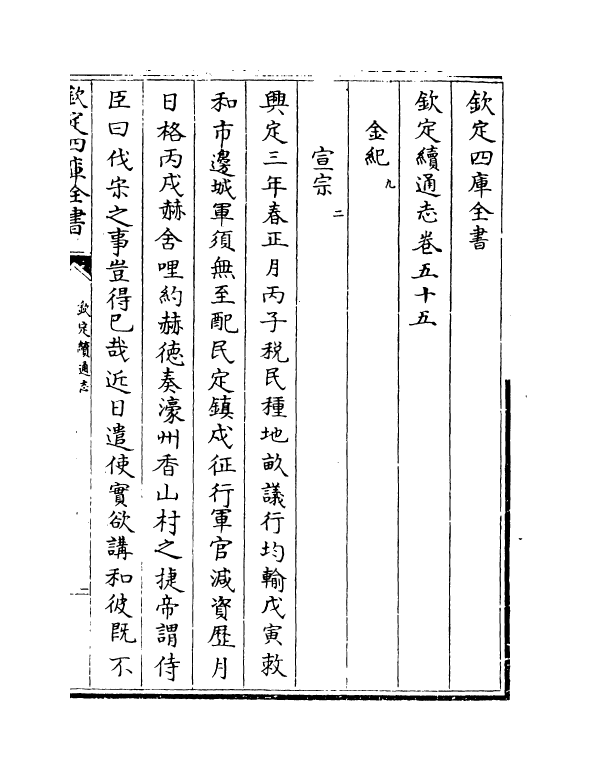 欽定四庫全書
欽定續通志卷五十五
金紀九
宣宗二
興定三年春正月丙子税民種地畝議行均輸戊寅敕
和市邊城軍須無至配民定鎮戍征行軍官減資歷月
日格丙戌赫舍哩約赫德奏濠州香山村之捷帝謂侍
臣曰伐宋之事豈得已哉近日遣使實欲講和彼既不
欽定四庫全書
欽定續通志